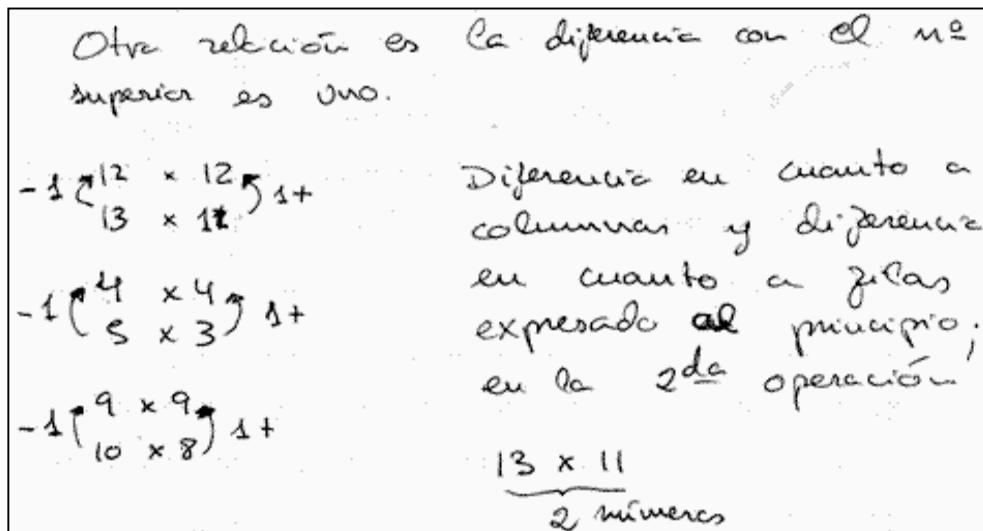 Otra relación es la diferencia con el nº
superior es uno.
-1 12 x 12 1+
13 x 11
-1 4 x 4 1+
5 x 3
-1 9 x 9 1+
10 x 8
Diferencia en cuanto a
columnas y diferencia
en cuanto a filas
expresado al principio;
en la 2da operación
13 x 11
2 números